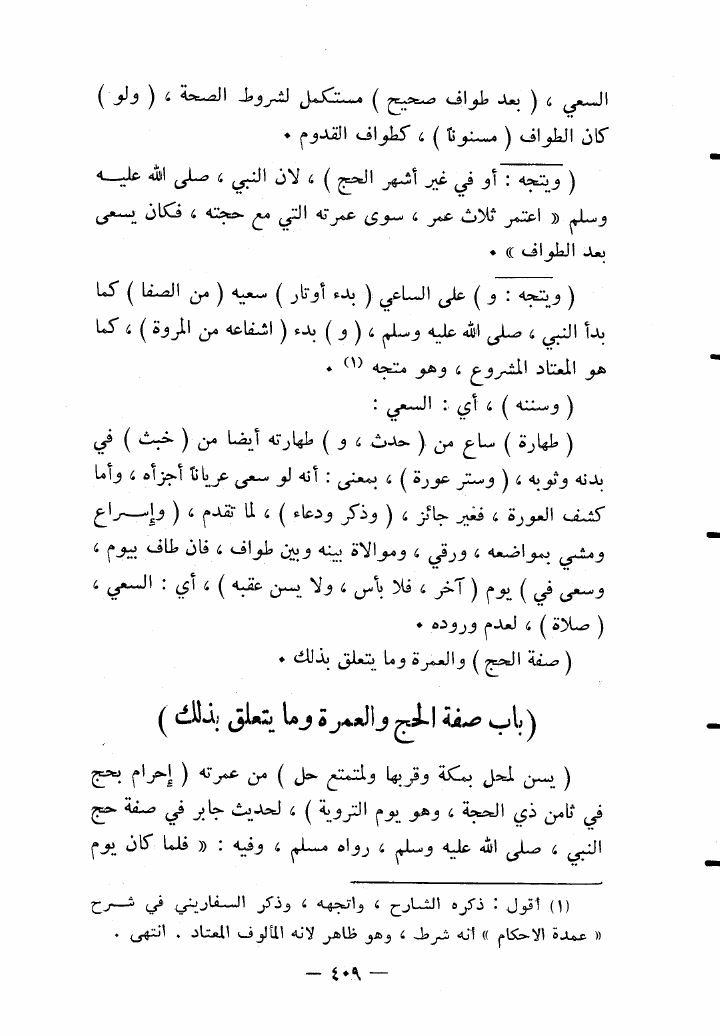 السعي ، ( بعد طواف صحيح ) مستكمل لشروط الصحة ، ( ولو )
كان الطواف ( مسنوناً ) ، كطواف القدوم .
( ويتجه : أو في غير أشهر الحج ) ، لان النبي ، صلى الله عليه
وسلم « اعتمر ثلاث عمر ، سوى عمرته التي مع حجته ، فكان يسعى
بعد الطواف » .
( ويتجه : و ) على الساعي ( بدء أوتار ) سعيه ( من الصفا ) كما
بدأ النبي ، صلى الله عليه وسلم ، ( و ) بدء ( اشفاعه من المروة ) ، كما
هو المعتاد المشروع ، وهو متجه (١) .
( وسننه ) ، أي : السعي :
( طهارة ) ساع من ( حدث ، و ) طهارته أيضا من ( خبث ) في
بدنه وثوبه ، ( وستر عورة ) ، بمعنى : أنه لو سعى عرياناً أجزأه ، وأما
كشف العورة ، فغير جائز ، ( وذكر ودعاء ) ، لما تقدم ، ( وإسراع
ومشي بمواضعه ، ورقي ، وموالاة بينه وبين طواف ، فان طاف بيوم ،
وسعى في ) يوم ( آخر ، فلا بأس ، ولا يسن عقبه ) ، أي : السعي ،
( صلاة ) ، لعدم وروده .
( صفة الحج ) والعمرة وما يتعلق بذلك .
( باب صفة الحج والعمرة وما يتعلق بذلك )
( يسن لمحل بمكة وقربها ولمتمتع حل ) من عمرته ( إحرام بحج
في ثامن ذي الحجة ، وهو يوم التروية ) ، لحديث جابر في صفة حج
النبي ، صلى الله عليه وسلم ، رواه مسلم ، وفيه : « فلما كان يوم
(١) أقول : ذكره الشارح ، واتجهه ، وذكر السفاريني في شرح
« عمدة الاحكام » أنه شرط ، وهو ظاهر لانه المألوف المعتاد . انتهى .
— ٤٠٩ —